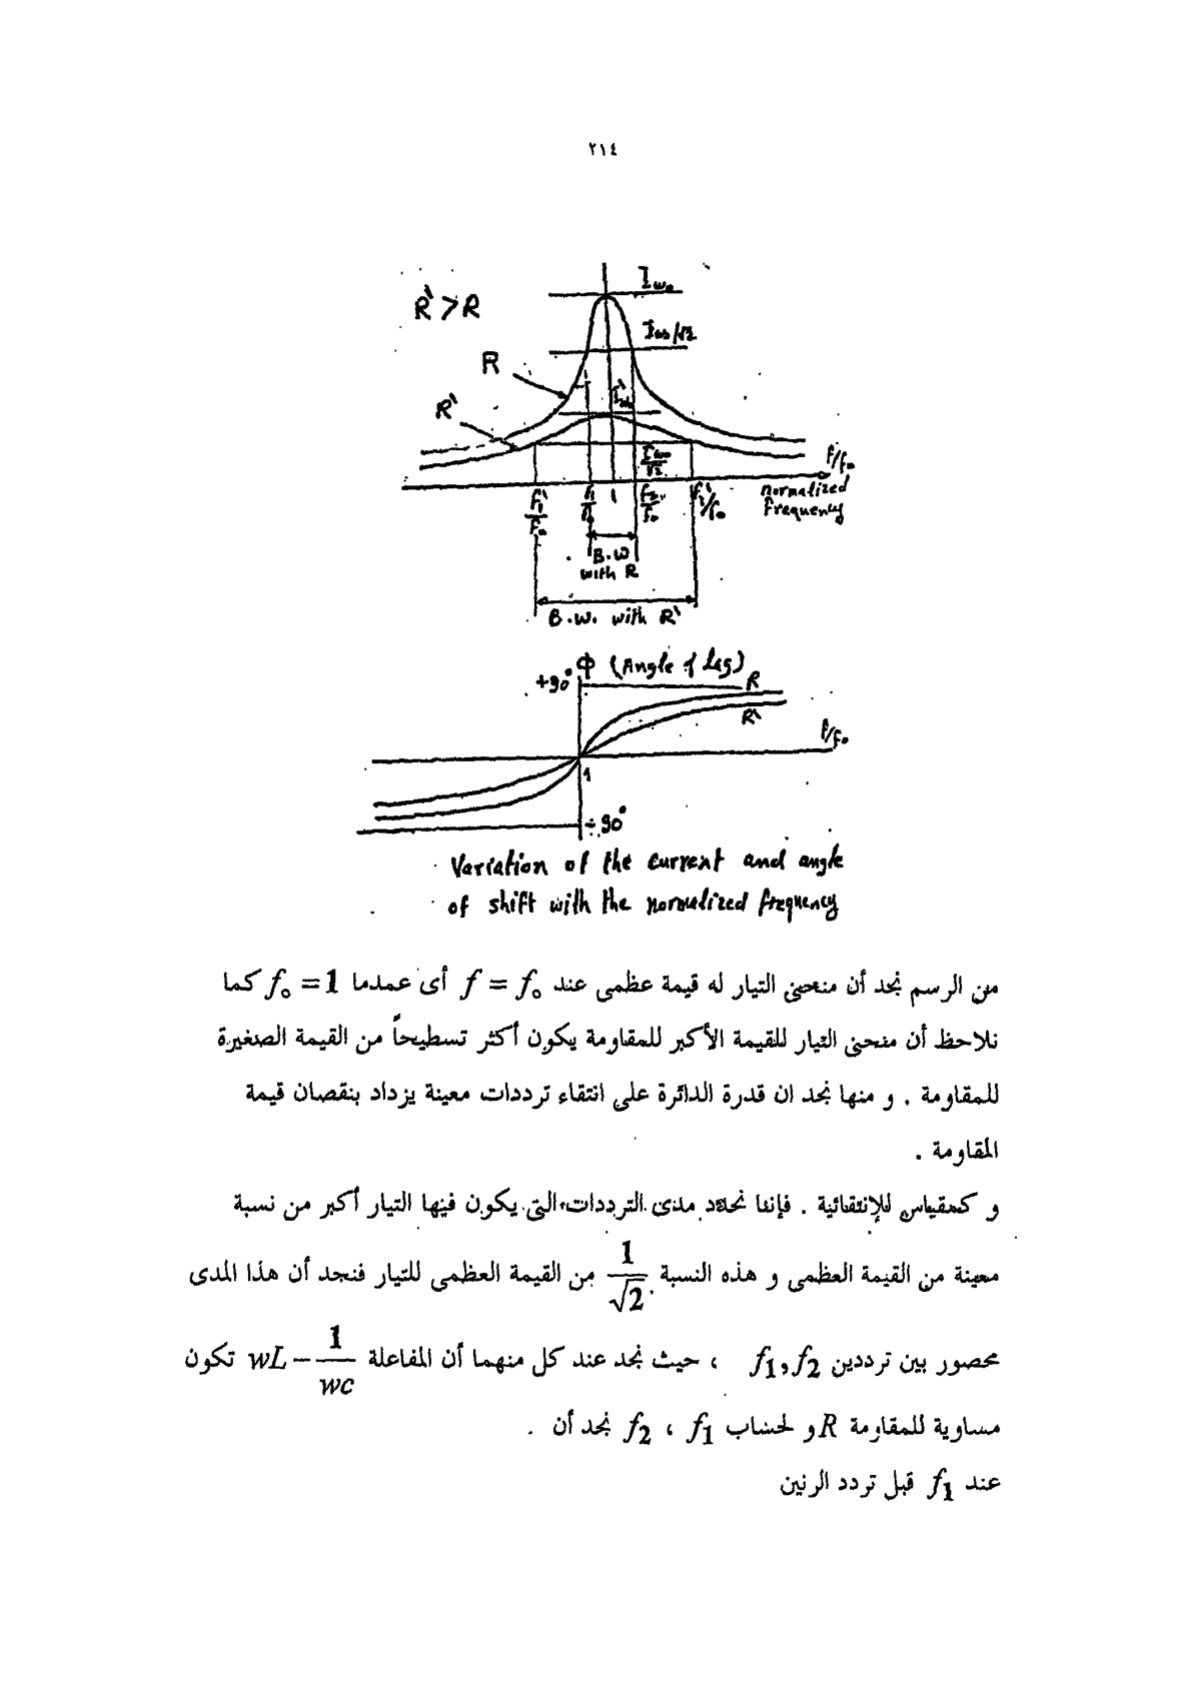 ٢١٤
I_{wo}
R' > R
I_{wo}/√2
R
I'_{wo}
R'
I'_{wo}/√2
f/f₀
normalized
frequency
f₁'/f₀
f₁/f₀
1
f₂/f₀
f₂'/f₀
B.W
with R
B.W. with R'
Φ (Angle of lag)
+90°
R
R'
f/f₀
1
-90°
Variation of the current and angle
of shift with the normalized frequency
من الرسم نجد أن منحنى التيار له قيمة عظمى عند f = f₀ أى عمدما f₀ = 1 كما
نلاحظ أن منحنى التيار للقيمة الأكبر للمقاومة يكون أكثر تسطيحاً من القيمة الصغيرة
للمقاومة . و منها نجد ان قدرة الدائرة على انتقاء ترددات معينة يزداد بنقصان قيمة
المقاومة .
و كمقياس للإنتقائية . فإننا نحدد مدى الترددات التى يكون فيها التيار أكبر من نسبة
معينة من القيمة العظمى و هذه النسبة 1/√2 من القيمة العظمى للتيار فنجد أن هذا المدى
محصور بين ترددين f₁, f₂ ، حيث نجد عند كل منهما أن المفاعلة wL − 1/wc تكون
مساوية للمقاومة R و لحساب f₁ ، f₂ نجد أن .
عند f₁ قبل تردد الرنين